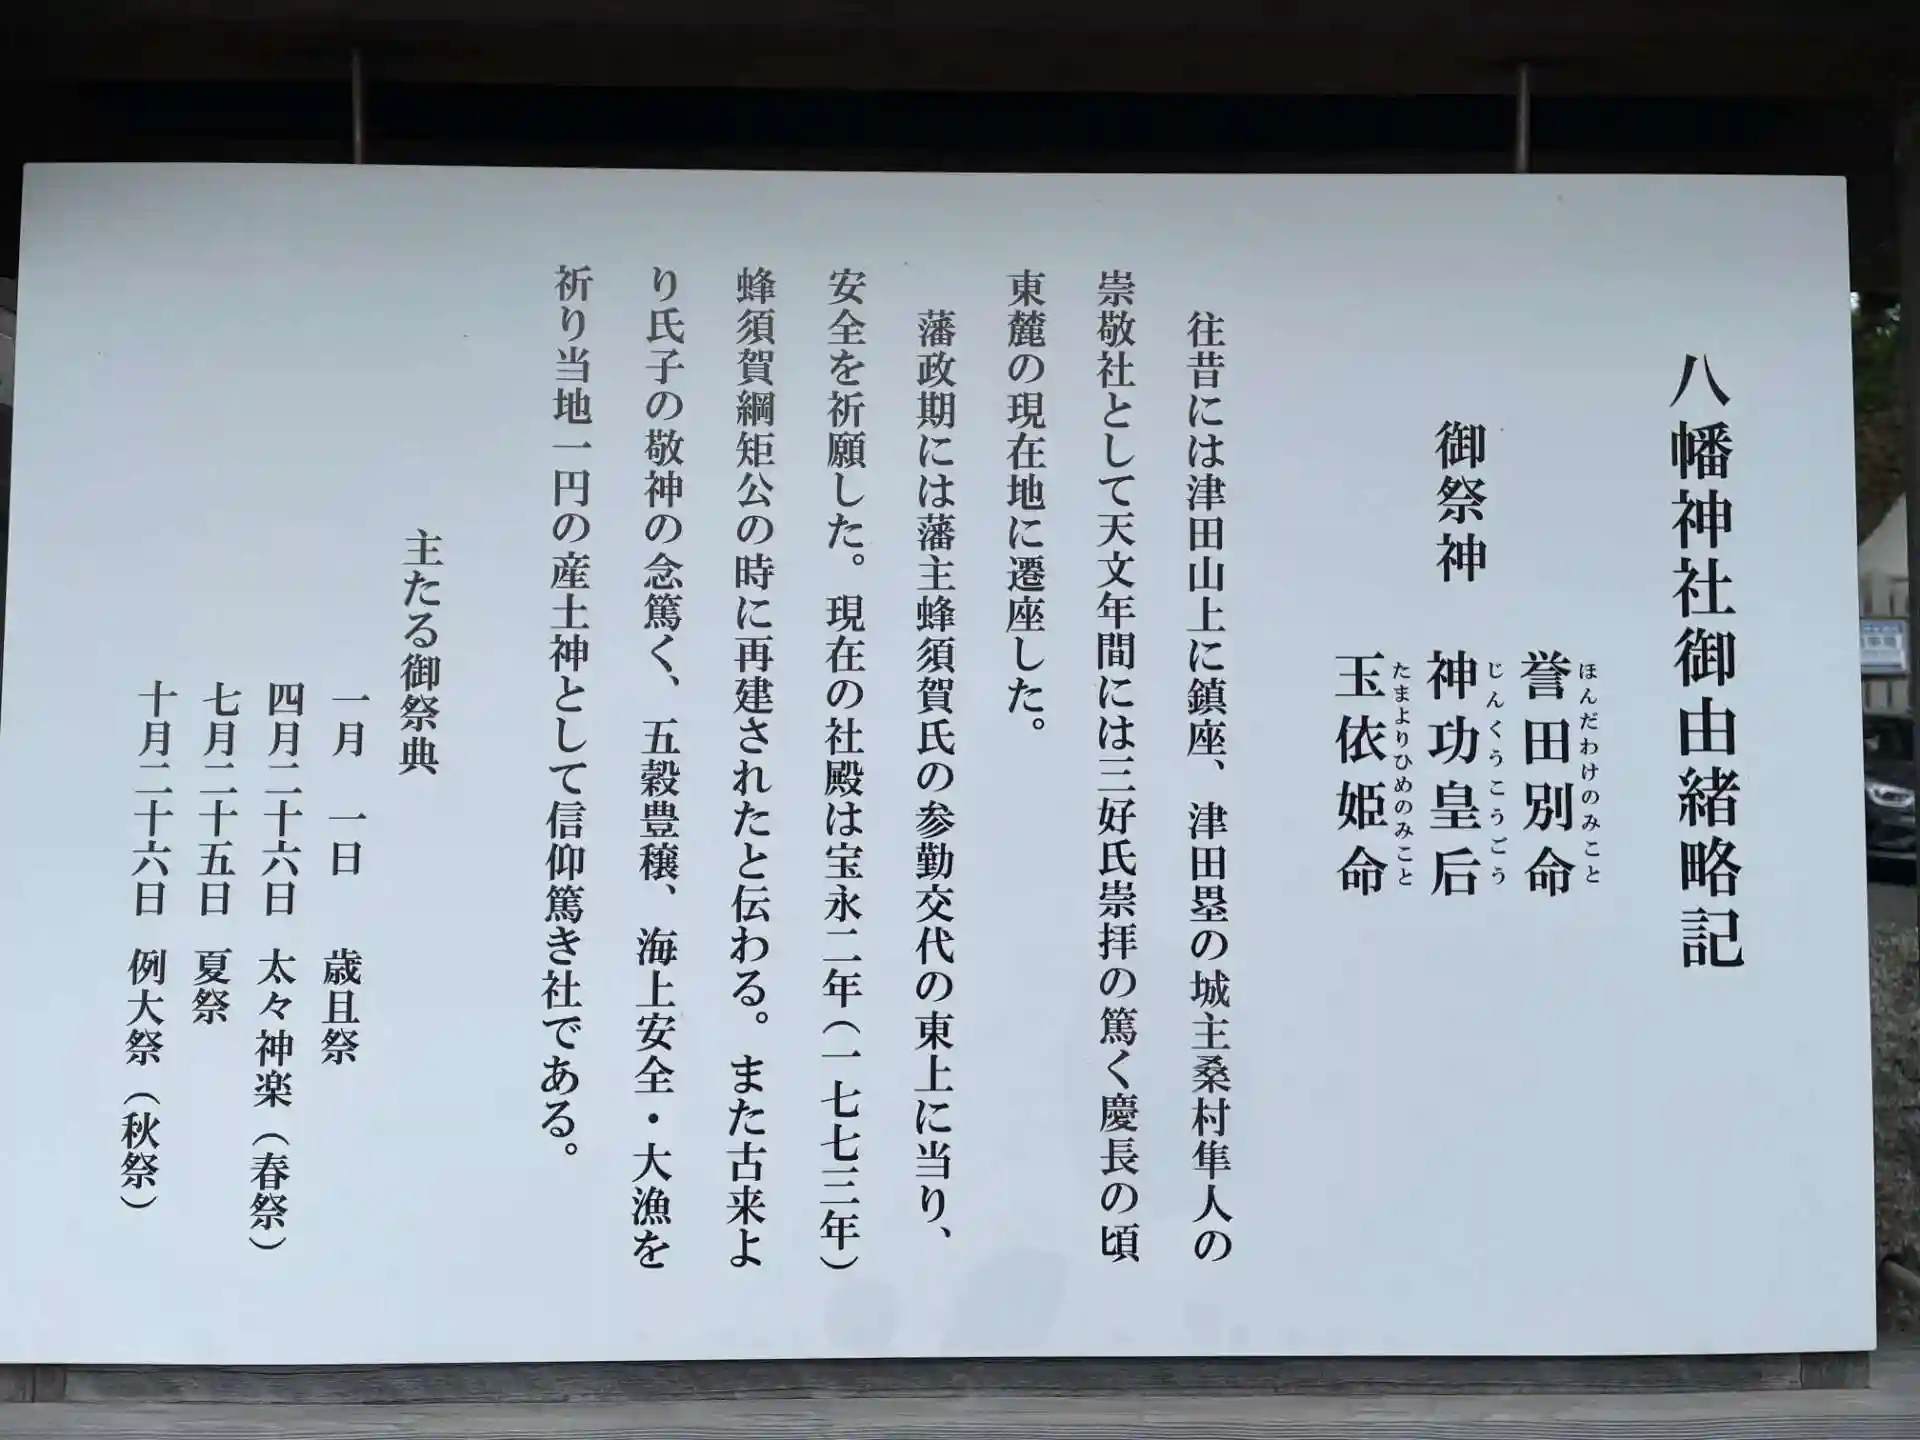 八幡神社御由緒略記
御祭神 誉田別命
ほんだわけのみこと
神功皇后
じんくうこうごう
玉依姫命
たまよりひめのみこと
往昔には津田山上に鎮座、津田塁の城主桑村隼人の
崇敬社として天文年間には三好氏崇拝の篤く慶長の頃
東麓の現在地に遷座した。
藩政期には藩主蜂須賀氏の参勤交代の東上に当り、
安全を祈願した。現在の社殿は宝永二年（一七七三年）
蜂須賀綱矩公の時に再建されたと伝わる。また古来よ
り氏子の敬神の念篤く、五穀豊穣、海上安全・大漁を
祈り当地一円の産土神として信仰篤き社である。
主たる御祭典
一月 一日 歳旦祭
四月二十六日 太々神楽（春祭）
七月二十五日 夏祭
十月二十六日 例大祭（秋祭）